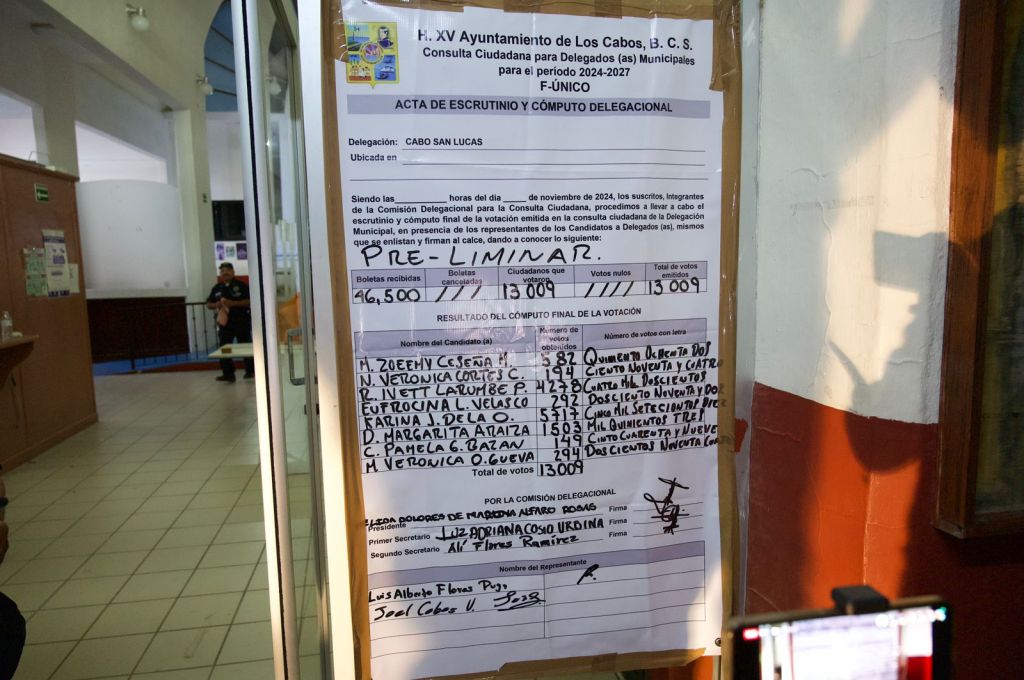 H. XV Ayuntamiento de Los Cabos, B. C. S.
Consulta Ciudadana para Delegados (as) Municipales
para el periodo 2024-2027
F-ÚNICO
ACTA DE ESCRUTINIO Y CÓMPUTO DELEGACIONAL
Delegación: CABO SAN LUCAS
Ubicada en
Siendo las horas del día de noviembre de 2024, los suscritos, Integrantes
de la Comisión Delegacional para la Consulta Ciudadana, procedimos a llevar a cabo el
escrutinio y cómputo final de la votación emitida en la consulta ciudadana de la Delegación
Municipal, en presencia de los representantes de los Candidatos a Delegados (as), mismos
que se enlistan y firman al calce, dando a conocer lo siguiente:
PRE-LIMINAR.
Boletas recibidas Boletas canceladas Ciudadanos que votaron Votos nulos Total de votos emitidos
46,500 //// 13009 //// 13009
RESULTADO DEL CÓMPUTO FINAL DE LA VOTACIÓN
Nombre del Candidato (a) Número de votos obtenidos Número de votos con letra
M. ZOEEMY CESEÑA M 582 QUIMENTO OCHENTA DOS
N. VERONICA CORTES C. 194 CIENTO NOVENTA Y CUATRO
R. IVETT LARUMBE P. 4278 CUATRO MIL DOSCIENTOS
EUFROCINA L. VELASCO 292 DOSCIENTO NOVENTA Y DOS
KARINA J. DE LA O. 5717 CINCO MIL SETECIONTOS DIEZ
D. MARGARITA ARAIZA 1503 MIL QUINIENTOS TRES
C. PAMELA G. BAZAN 149 CINTO CUARENTA Y NUEVE
M VERONICA O. GUEVA 294 DOSCIENTOS NOVENTA CUATRO
Total de votos 13009
POR LA COMISIÓN DELEGACIONAL
Presidente ELIDA DOLORES DE MARDINA ALFARO ROSAS Firma
Primer Secretario LUZ ADRIANA COSIO URBINA Firma
Segundo Secretario Alí Flores Ramírez Firma
Nombre del Representante
Luis Alberto Flores Puga
Joel Cobos V.